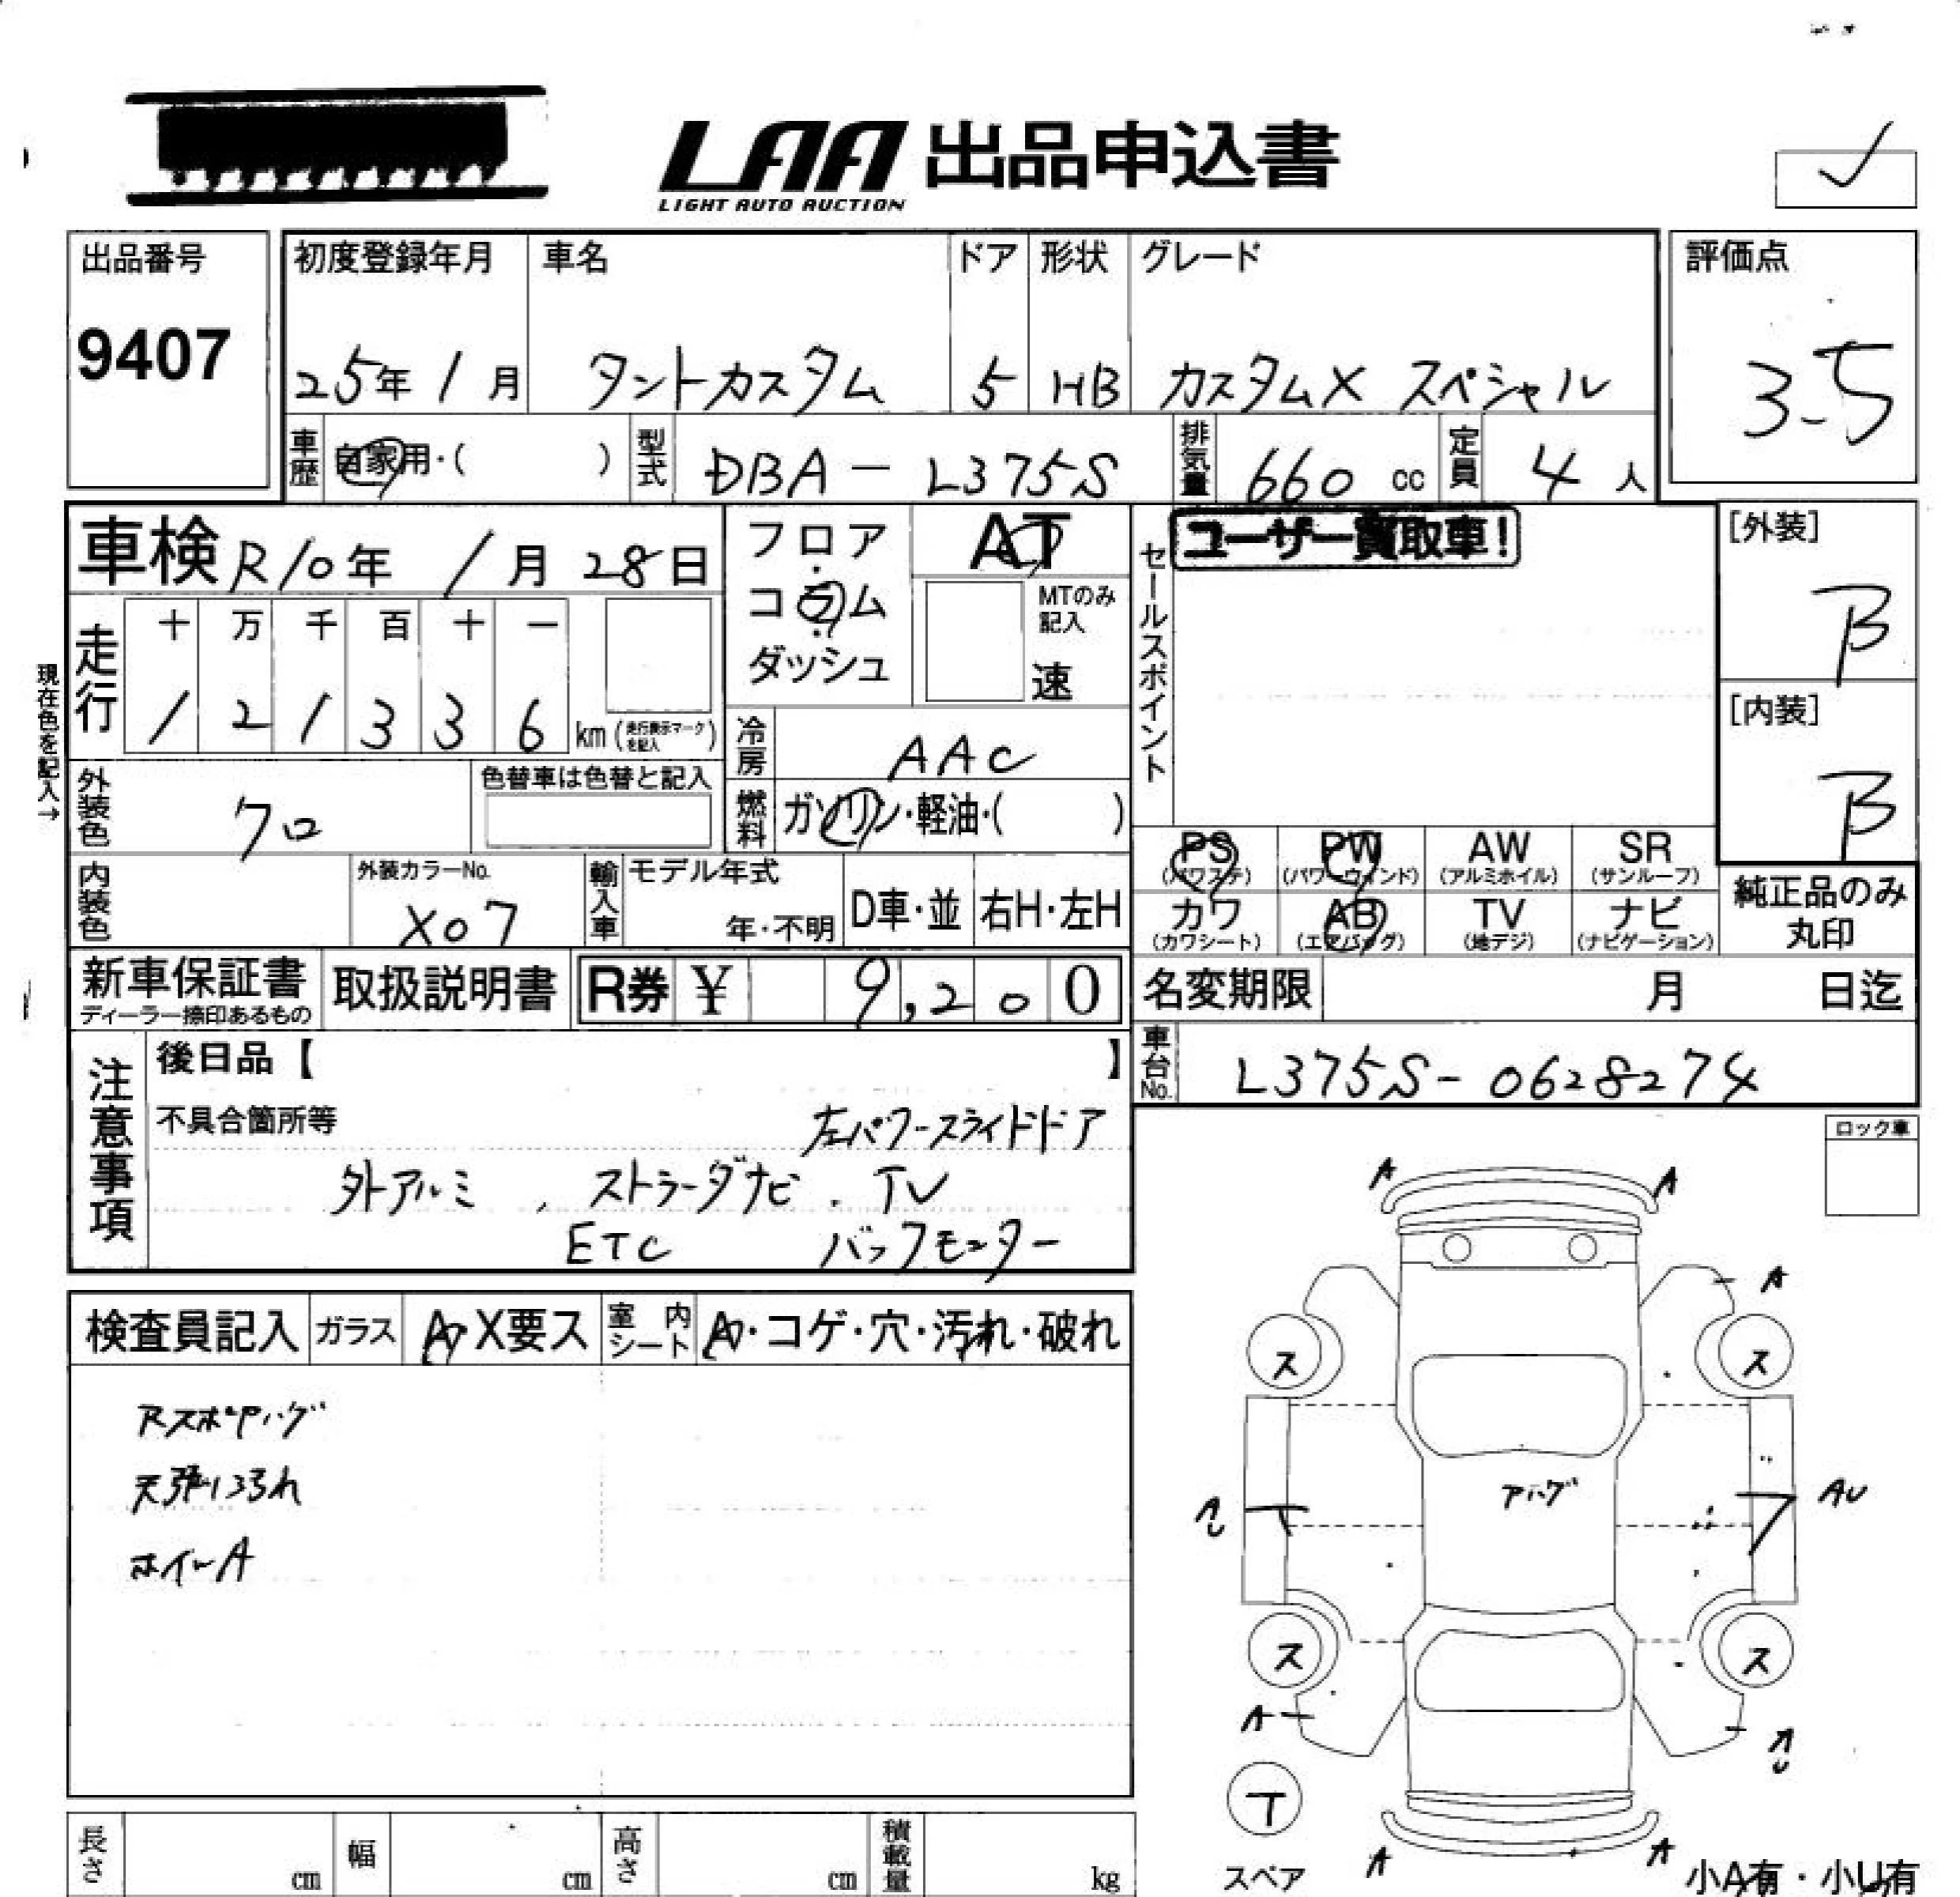 LAA 出品申込書
LIGHT AUTO AUCTION
出品番号
9407
初度登録年月
25年1月
車名
タントカスタム
ドア
5
形状
HB
グレード
カスタムX スペシャル
評価点
3.5
車歴
自家用・( )
型式
DBA-L375S
排気量
660 cc
定員
4 人
車検 R10年 1月 28日
フロア
・
コラム
・
ダッシュ
AT
MTのみ
記入
速
セールスポイント
ユーザー買取車!
[外装]
B
[内装]
B
現在色を記入→
走行
十 万 千 百 十 一
1 2 1 3 3 6 km (走行表示マークを記入)
冷房
AAC
燃料
ガソリン・軽油・( )
外装色
クロ
色替車は色替と記入
内装色
外装カラーNo.
X07
輸入車
モデル年式
年・不明
D車・並
右H・左H
PS
(パワステ)
PW
(パワーウィンド)
AW
(アルミホイル)
SR
(サンルーフ)
カワ
(カワシート)
AB
(エアバッグ)
TV
(地デジ)
ナビ
(ナビゲーション)
純正品のみ
丸印
新車保証書
ディーラー捺印あるもの
取扱説明書
R券 ¥ 9,200
名変期限 月 日迄
車台No.
L375S-0628274
注意事項
後日品【 】
不具合箇所等
左パワースライドドア
外アルミ 、ストラーダナビ . TV
ETC バックモニター
ロック車
検査員記入
ガラス
A・X要ス
室内シート
A・コゲ・穴・汚れ・破れ
天張り汚れ
ホイールA
A A
A
ス ス
AU
AU
ス ス
A
AU
T
スペア
A A
小A有・小U有
長さ cm
幅 cm
高さ cm
積載量 kg